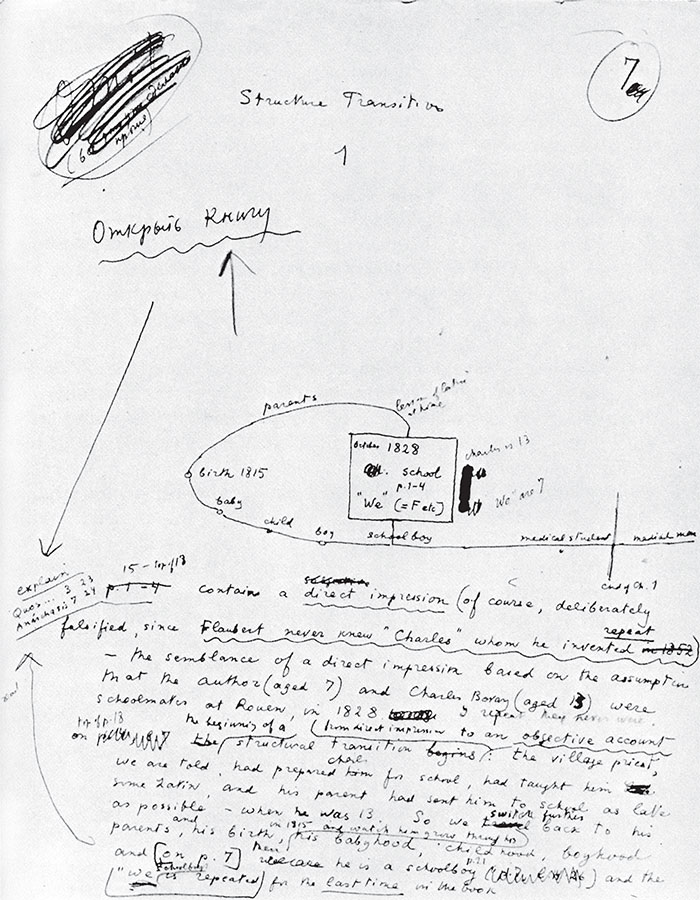 7
Structure Transition
1
Открыть Книгу
parents
lesson of latin
at home
October 1828
school
p.1-4
"We" (=F etc)
Charles is 13
"We" are 7
birth 1815
baby
child
boy
schoolboy
medical student
medical man
end of Ch. 1
explain
Quos... 3 23
Anacharsis 7 24
15 - top of 18
p. 1-4 contains a direct impression (of course, deliberately
falsified, since Flaubert never knew "Charles" whom he invented in 1852) repeat
- the semblance of a direct impression based on the assumption
that the author (aged 7) and Charles Bovary (aged 13) were
schoolmates at Rouen, in 1828 I repeat they never were.
top of p. 18
on p. the beginning of a structural transition (from direct impression to an objective account begins): the village priest,
we are told, had prepared Charles for school, had taught him
some Latin, and his parent had sent him to school as late
as possible - when he was 13. So we switch further back to his
parents, and his birth, in 1815 and watch him grow through his babyhood, childhood, boyhood
and [on p. 7] then he is a schoolboy p.21 and the
schoolboy
("we" is repeated) for the last time in the book